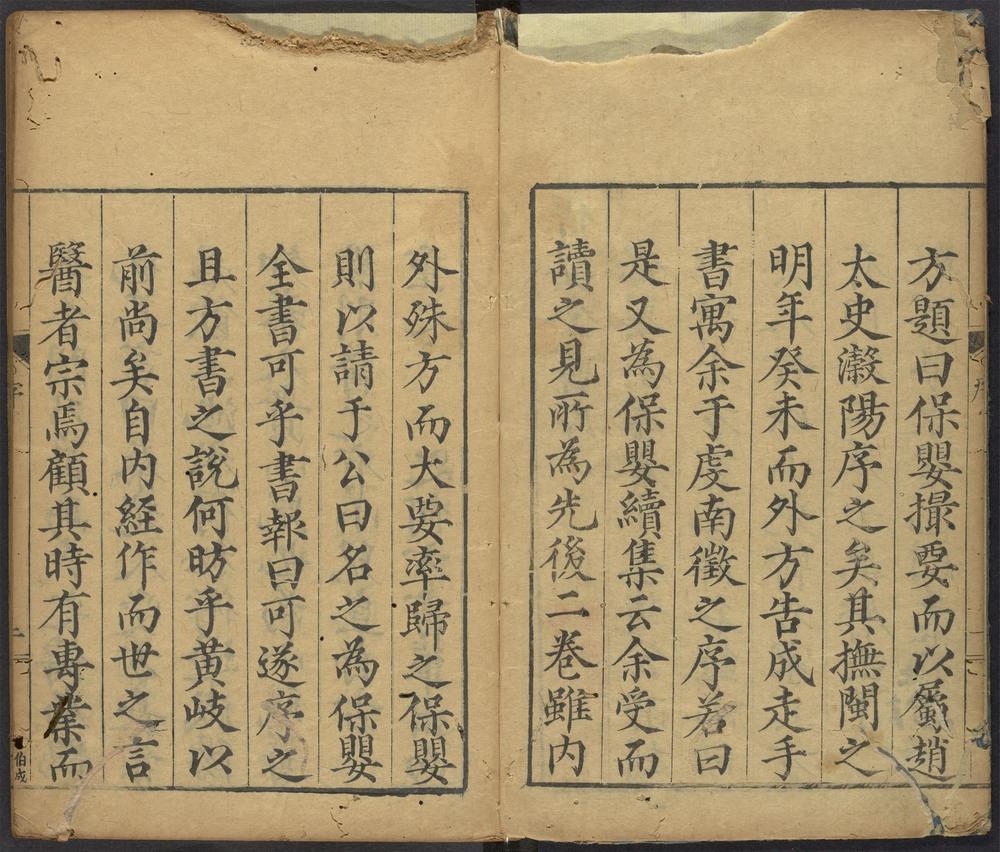 方題曰保嬰撮要而以屬趙
太史瀫陽序之矣其撫閩之
明年癸未而外方告成走手
書寓余于虔南徵之序若曰
是又為保嬰續集云余受而
讀之見所為先後二卷雖内
外殊方而大要率歸之保嬰
則以請于公曰名之為保嬰
全書可乎書報曰可遂序之
且方書之說何昉乎黄岐以
前尚矣自内経作而世之言
醫者宗焉顧其時有專業而
序
二
伯成